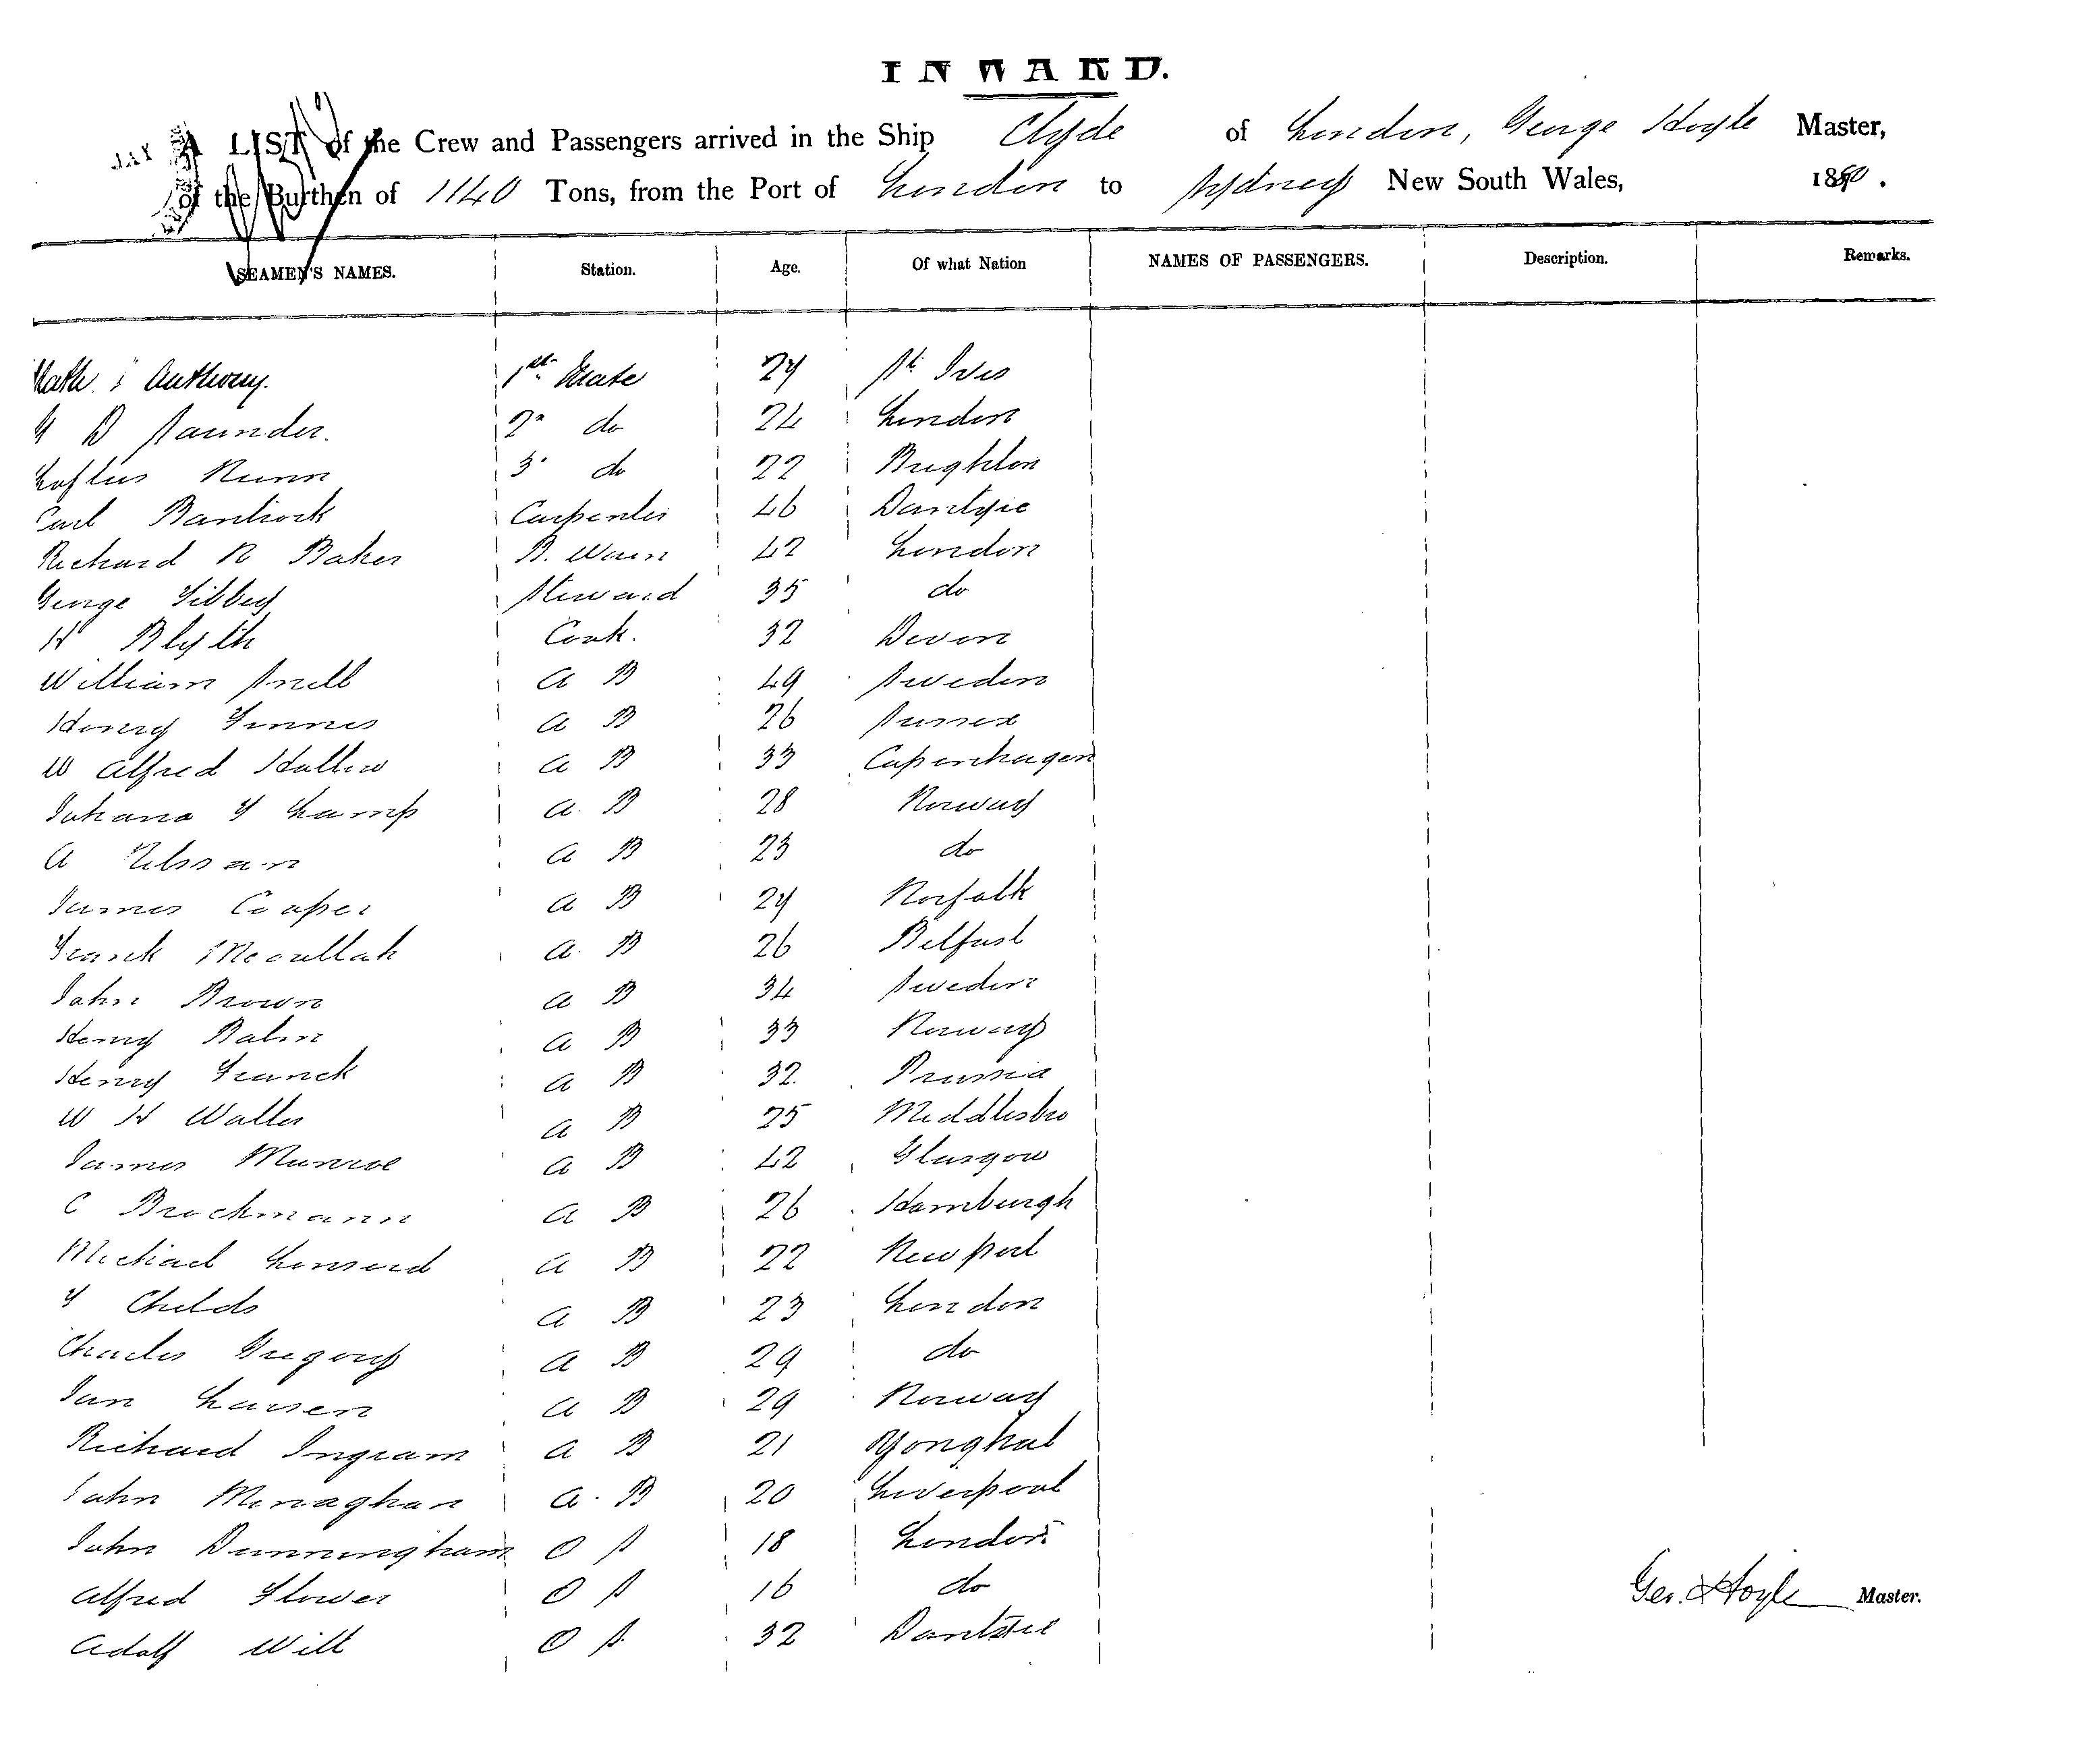 INWARD.
A LIST of the Crew and Passengers arrived in the Ship Clyde of London, George Hoyle Master,
of the Burthen of 1140 Tons, from the Port of London to Sydney New South Wales, 1880.
SEAMEN'S NAMES. Station. Age. Of what Nation NAMES OF PASSENGERS. Description. Remarks.
Anthony. 1st Mate 27 St Ives
B Saunder. 2n do 24 London
Loftus Nunn 3. do 22 Brighton
Carl 46 Dantzic
Richard R Baker B. Wain 42 London
George Tibbey Steward 35 do
H Blyth Cook. 32 Devon
William Snell A B 49 Sweden
Henry Finnes A B 26 Sussex
W Alfred Hallew A B 33 Copenhagen
Lamp A. B 28 Norway
A Nelssan A B 23 do
James Cooper A B 27 Norfolk
Franck Mccullah A. B 26 Belfast
John Brown A B 34 Sweden
Henry Balin A B 33 Norway
Henry Franck A B 32. Prussia
W H Waller A B 25 Middlesbro
James Munroe A B 42 Glasgow
C Brockmann A B 26 Hamburgh
Michael A B 22 Newport
F Childs A B 23 London
Charles Gregory A B 29 do
Jan Larsen A B 29 Norway
Richard Ingram A B 21 Yonghal
John Monaghan A. B 20 Liverpool
John Dunningham O S 18 London
Alfred Flower O S 16 do
Adolf Witt O S. 32 Dantzic
Geo. Hoyle Master.